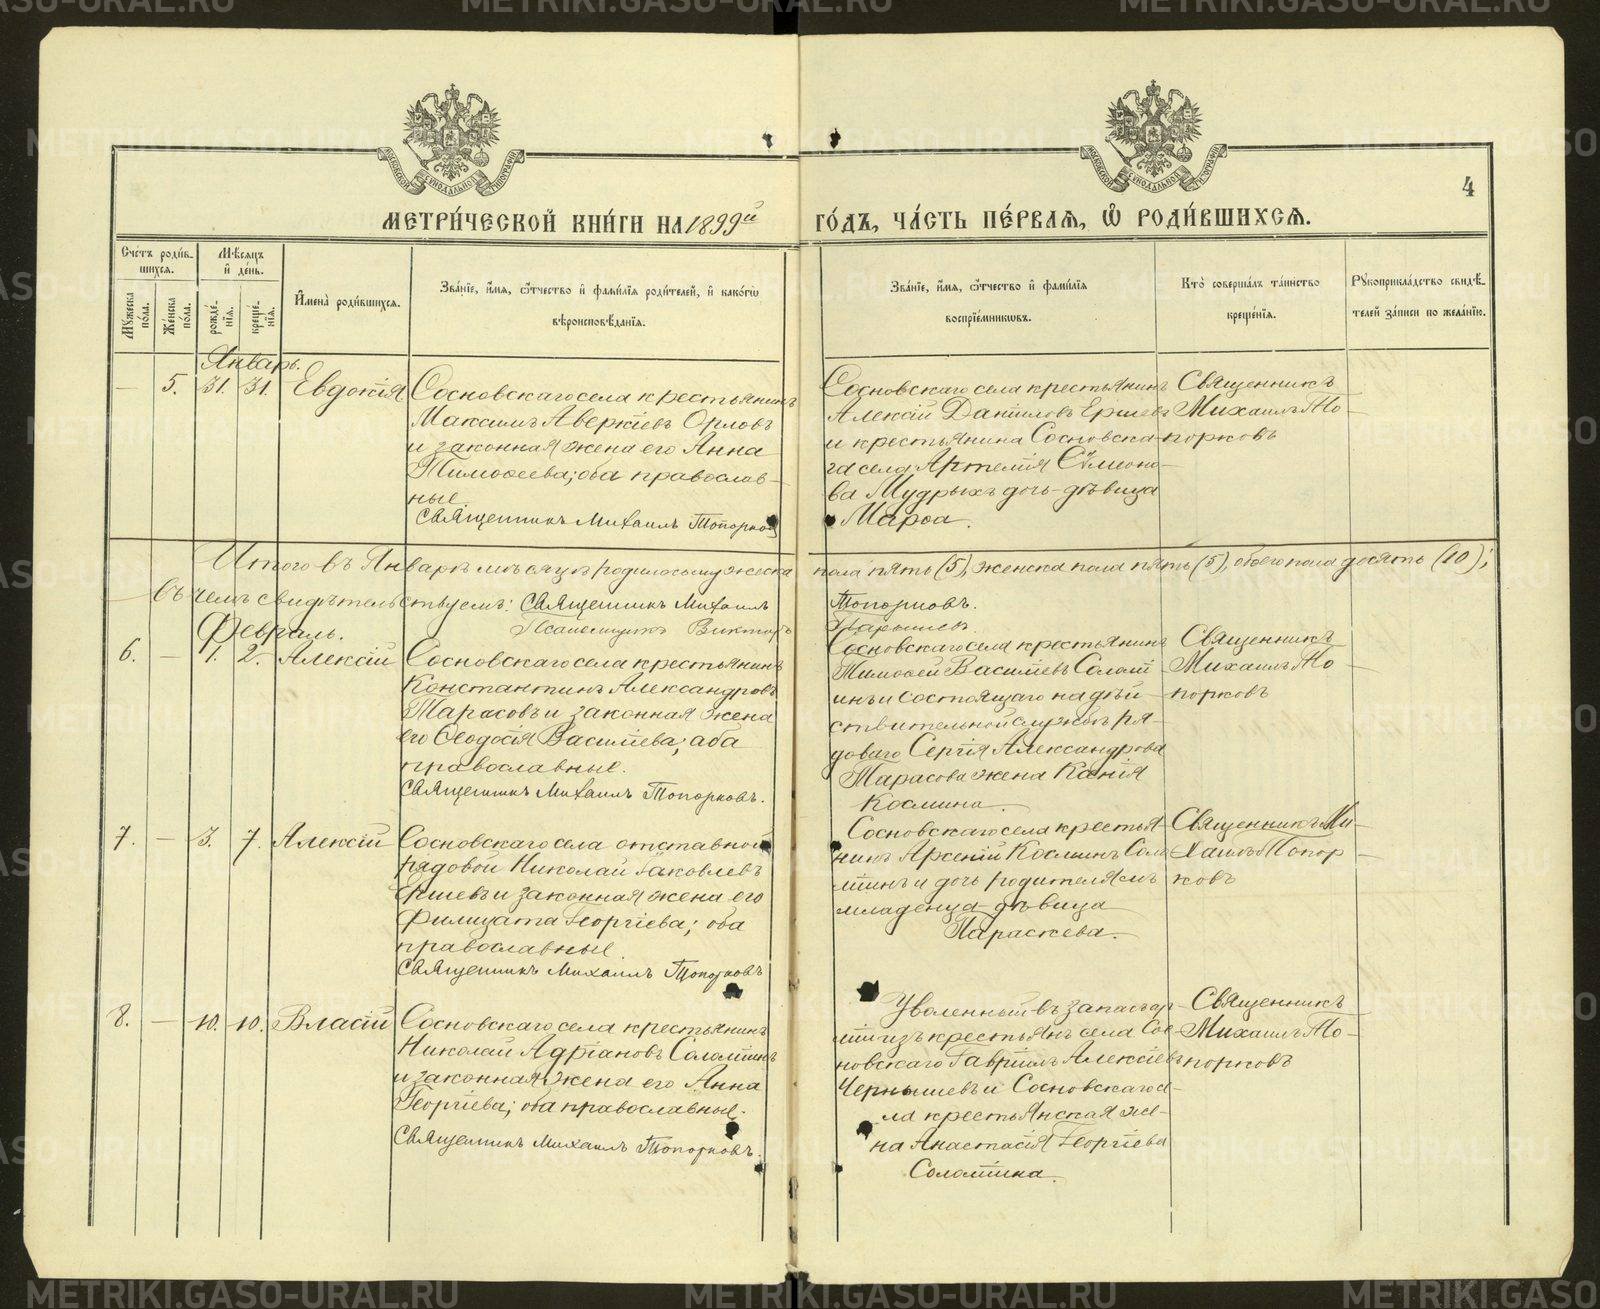 METRIKI.GASO-URAL.RU
4
МЕТРИ́ЧЕСКОЙ КНИ́ГИ НА 1899й
ГО́ДЪ, ЧА́СТЬ ПЕ́РВАЯ, Ѡ҆ РОДИ́ВШИХСЯ.
Сче́тъ роди́в-
шихся.
Мѣ́сяцъ
и҆ де́нь.
Мꙋ́жеска
по́ла.
Же́нска
по́ла.
рожде́-
нїя.
креще́-
нїя.
И҆мена̀ роди́вшихся.
Зва́нїе, и҆́мя, ѻ҆́тчество и҆ фами́лїя роди́телей, и҆ како́гѡ
вѣроисповѣ́данїя.
Зва́нїе, и҆́мя, ѻ҆́тчество и҆ фами́лїя
воспрїе́мникѡвъ.
Кто̀ соверша́лъ та́инство
креще́нїя.
Рꙋкоприкла́дство свидѣ́-
телей за́писи по жела́нїю.
Январь.
— 5. 31. 31. Евдокія
Сосновскаго села крестьянинъ
Максимъ Аверкіевъ Орловъ
и законная жена его Анна
Тимоѳеева; оба православ-
ные.
Священникъ Михаилъ Топорков
Сосновскаго села крестьянинъ
Алексій Даніиловъ Ершевъ
и крестьянина Сосновска-
га села Артемія Сѵмеоно-
ва Мудрыхъ дочь дѣвица
Марѳа.
Священникъ
Михаилъ То-
порковъ
Итого въ Январѣ мѣсяцѣ родилось мужеска
пола пять (5), женска пола пять (5), обоего пола десять (10);
въ чемъ свидѣтельствуемъ: Священникъ Михаилъ
Топорковъ.
Псаломщикъ Викторъ
Февраль.
6. — 1. 2. Алексій
Сосновскаго села крестьянинъ
Константинъ Александровъ
Тарасовъ и законная жена
его Ѳеодосія Васильева; оба
православные.
Священникъ Михаилъ Топорковъ.
Сосновскаго села крестьянинъ
Тимоѳей Васильевъ Солом-
инъ и состоящаго на дѣй-
ствительной службѣ ря-
доваго Сергія Александрова
Тарасова жена Ксенія
Космина.
Священникъ
Михаилъ То-
порковъ
7. — 3. 7. Алексій
Сосновскаго села отставной
рядовой Николай Іаковлевъ
Ершевъ и законная жена его
Филицата Георгіева; оба
православные.
Священникъ Михаилъ Топорковъ
Сосновскаго села крестья-
нинъ Арсеній Косминъ Соло
минъ и дочь родителямъ
младенца дѣвица
Параскева.
Священникъ Ми-
хаилъ Топор-
ковъ
8. — 10. 10. Власій
Сосновскаго села крестьянинъ
Николай Адріановъ Соломинъ
и законная жена его Анна
Георгіева; оба православные.
Священникъ Михаилъ Топорковъ.
Уволенный въ запасъ ар-
міи изъ крестьянъ села Сос-
новскаго Гавріилъ Алексіевъ
Чернышевъ и Сосновскаго се-
ла крестьянская же-
на Анастасія Георгіева
Соломина.
Священникъ
Михаилъ То-
порковъ